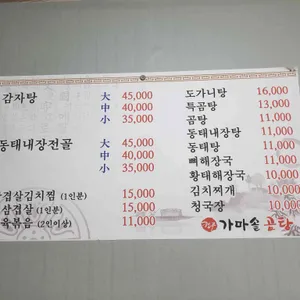 감자탕 大 45,000
中 40,000
小 35,000
동태내장전골 大 45,000
中 40,000
小 35,000
겹살김치찜 (1인분) 15,000
삼겹살 (1인분) 15,000
육볶음 (2인이상) 11,000
도가니탕 16,000
특곰탕 13,000
곰탕 11,000
동태내장탕 11,000
동태탕 11,000
뼈해장국 11,000
황태해장국 10,000
김치찌개 10,000
청국장 10,000
가마솥 곰탕